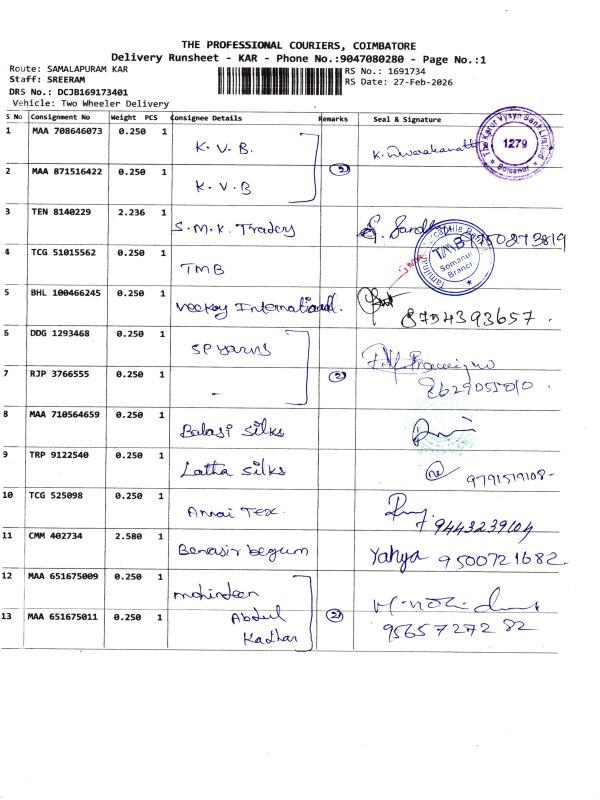 THE PROFESSIONAL COURIERS, COIMBATORE
Delivery Runsheet - KAR - Phone No.:9047080280 - Page No.:1
Route: SAMALAPURAM KAR
RS No.: 1691734
Staff: SREERAM
RS Date: 27-Feb-2026
DRS No.: DCJB169173401
Vehicle: Two Wheeler Delivery
S No Consignment No Weight PCS Consignee Details Remarks Seal & Signature
1 MAA 708646073 0.250 1 K. V. B. K. Dwarakanath
The Karur Vysya Bank Limited 1279 Somanur
2 MAA 871516422 0.250 1 K. V. B (2)
3 TEN 8140229 2.236 1 S. M. K. Traders
4 TCG 51015562 0.250 1 TMB
TMB Somanur Branch
5 BHL 100466245 0.250 1 Veekay International. 8754393657.
6 DDG 1293468 0.250 1 SP yarns
7 RJP 3766555 0.250 1 - (2) 8629055010.
8 MAA 710564659 0.250 1 Balaji Silks
9 TRP 9122540 0.250 1 Latha silks 9791519108-
10 TCG 525098 0.250 1 Annai Tex. 9443239104
11 CMM 402734 2.580 1 Benasir begum Yahya 9500721682.
12 MAA 651675009 0.250 1 mohideen
13 MAA 651675011 0.250 1 Abdul Kadhar (2) 9565727282